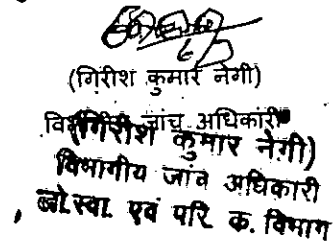 (गिरीश कुमार नेगी)
जांच अधिकारी
(गिरीश कुमार नेगी)
विभागीय जांच अधिकारी
लो.स्वा. एवं परि. क. विभाग